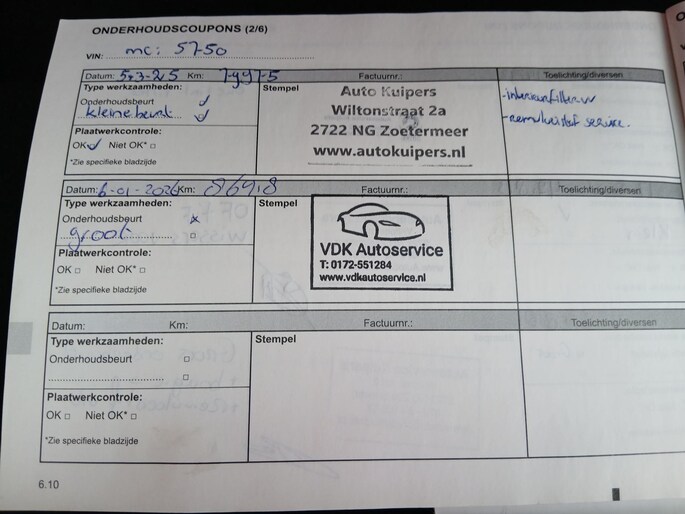 ONDERHOUDSCOUPONS (2/6)
VIN: mc: 5750
Datum: 5-3-25 Km: Factuurnr.: Toelichting/diversen
Type werkzaamheden: Stempel
Onderhoudsbeurt
kleine beurt
Plaatwerkcontrole:
OK Niet OK*
*Zie specifieke bladzijde
Auto Kuipers
Wiltonstraat 2a
2722 NG Zoetermeer
www.autokuipers.nl
-interieurfilter vv
-remvloeistof service.
Datum: 6-01-2026 Km: 86918 Factuurnr.: Toelichting/diversen
Type werkzaamheden: Stempel
Onderhoudsbeurt
groot
Plaatwerkcontrole:
OK Niet OK*
*Zie specifieke bladzijde
VDK Autoservice
T: 0172-551284
www.vdkautoservice.nl
Datum: Km: Factuurnr.: Toelichting/diversen
Type werkzaamheden: Stempel
Onderhoudsbeurt
Plaatwerkcontrole:
OK Niet OK*
*Zie specifieke bladzijde
6.10